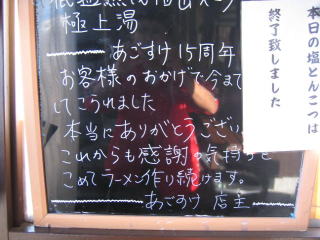 極上湯
あごすけ15周年
お客様のおかげで今まで
してこられました
本当にありがとうござい
これからも感謝の気持ちを
こめてラーメン作り続けます。
あごすけ 店主
本日の塩とんこつは
終了致しました